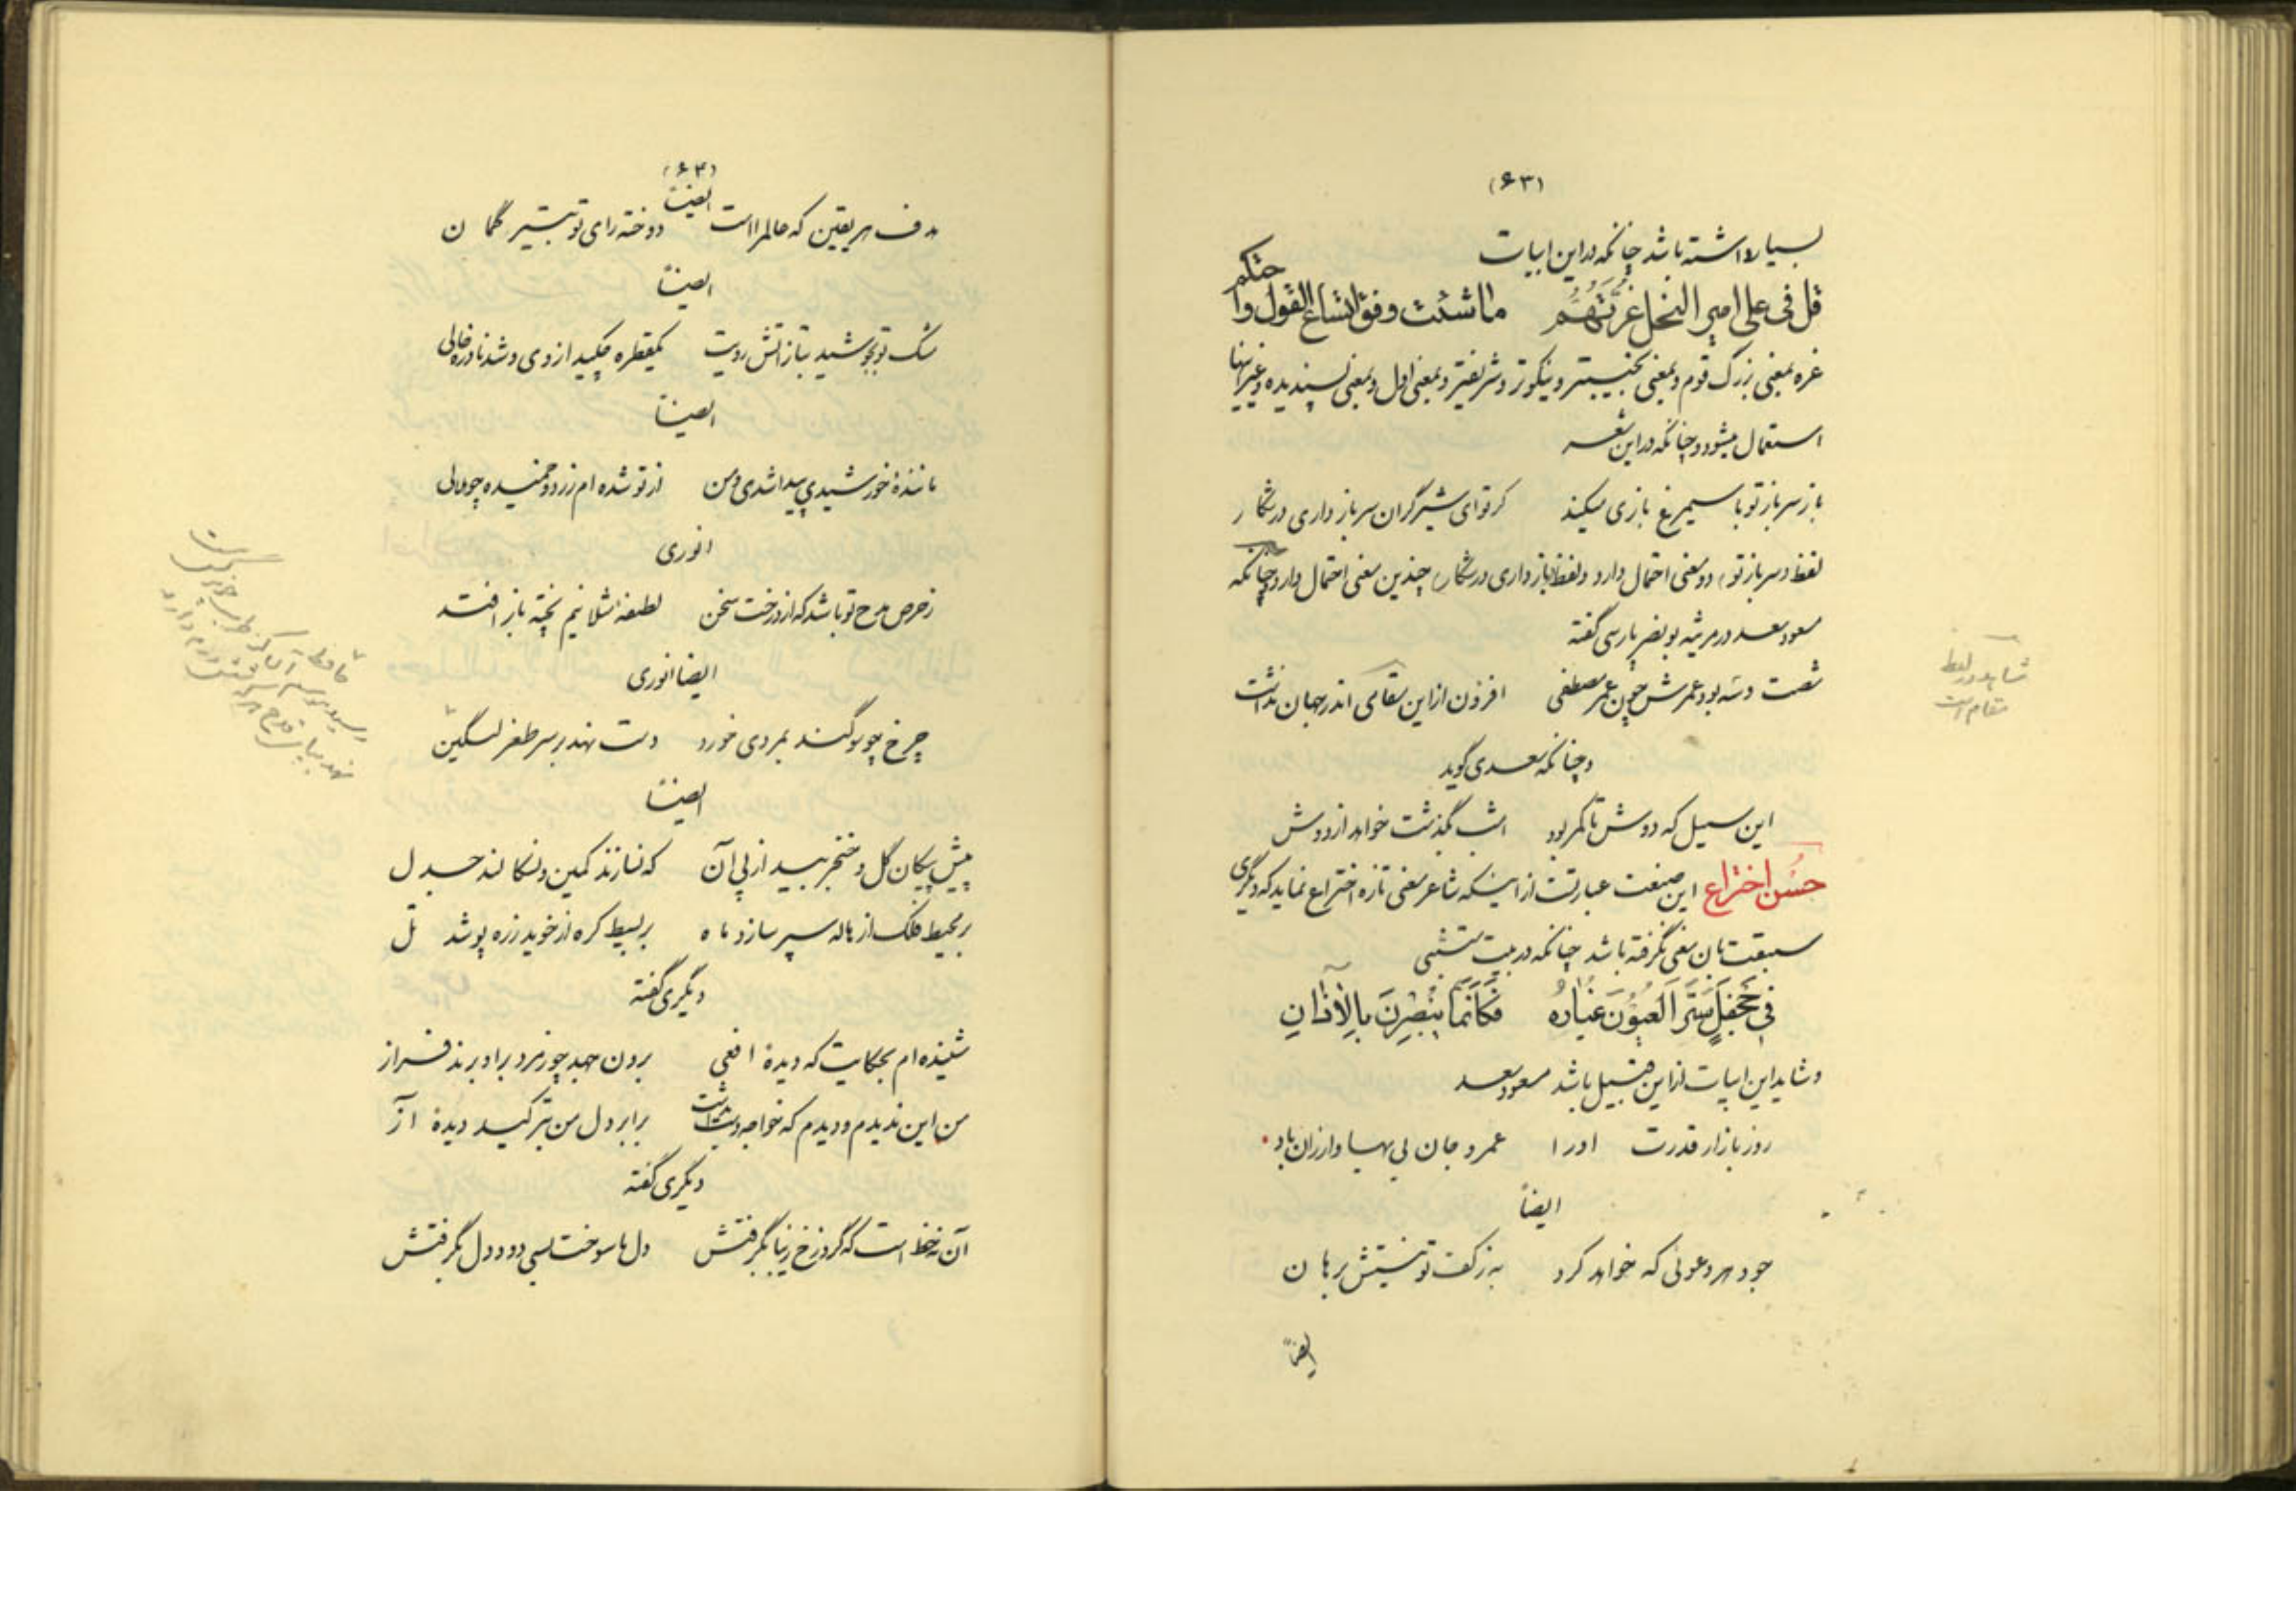 (۶۳)
بسیار داشته باشد چنانکه در این ابیات
قل فی علی امیر النحل غرتهم ما شئت وفق اتساع القول واحتکم
غره بمعنی بزرگ قوم و بمعنی نجیبتر و نیکوتر و شریفتر و بمعنی اول و بمعنی پسندیده و غیر اینها
استعمال میشود و چنانکه در این شعر
باز سر باز تو با سیمرغ بازی میکند کر تو ای شیر گران سر باز داری در شکار
لفظ (سر باز تو) دو معنی احتمال دارد و لفظ (باز داری در شکار) چندین معنی احتمال دارد و چنانکه
مسعود سعد در مرثیه بو نصر پارسی گفته
شصت و سه بود عمرش چون عمر مصطفی افزون از این مقامی اندر جهان نداشت
و چنانکه سعدی گوید
این سیل که دوش تا کمر بود امشب بگذشت خواهد از دوش
حُسن اختراع این صنعت عبارتست از اینکه شاعر معنی تازه اختراع نماید که دیگری
سبقت بان معنی نگرفته باشد چنانکه در بیت متنبی
فی جَحفَلٍ سَتَرَ العُیُونَ غُبارُهُ فَکَأَنَّما یُبْصِرْنَ بِالآذانِ
و شاید این ابیات از این قبیل باشد مسعود سعد
روز بازار قدرت او را عمر و جان بی بها و ارزان باد
ایضاً
جود هر دعوئی که خواهد کرد به ز کف تو نیستش برهان
ایضاً
شاید در لفظ
مقام است
(۶۴)
هدف هر یقین که عالم را است دوخته رای تو بتیر گمان
ایضاً
ایضاً
مشک تو بجوشید بتاز آتش رویت یکقطره چکید از وی و شد نادره خالی
ایضاً
ماننده خورشیدی پیدا شدی و من از تو شده ام زرد و خمیده چو هلالی
انوری
ز حرص مدح تو باشد که از درخت سخن لطیفه مثلا نیم پخته باز افتد
ایضا انوری
چرخ چو سوگند بمردی خورد دست نهد بر سر طغرلتگین
ایضاً
پیش پیکان گل و خنجر بید از پی آن که نسازند کمین و نسکالند جدل
بر محیط فلک از هاله سپر سازد ماه بر بسیط کره از خوید زره پوشد تل
دیگری گفته
شنیده ام بحکایت که دیده افعی برون جهد چو زمرد بر او برند فراز
من این ندیدم و دیدم که خواجه دست بداشت برابر دل من بترکید دیده آز
دیگری گفته
آن نه خط است که گرد رخ زیبا بگرفتش دل ها سوخت بسی دود دل بگرفتش
حافظ